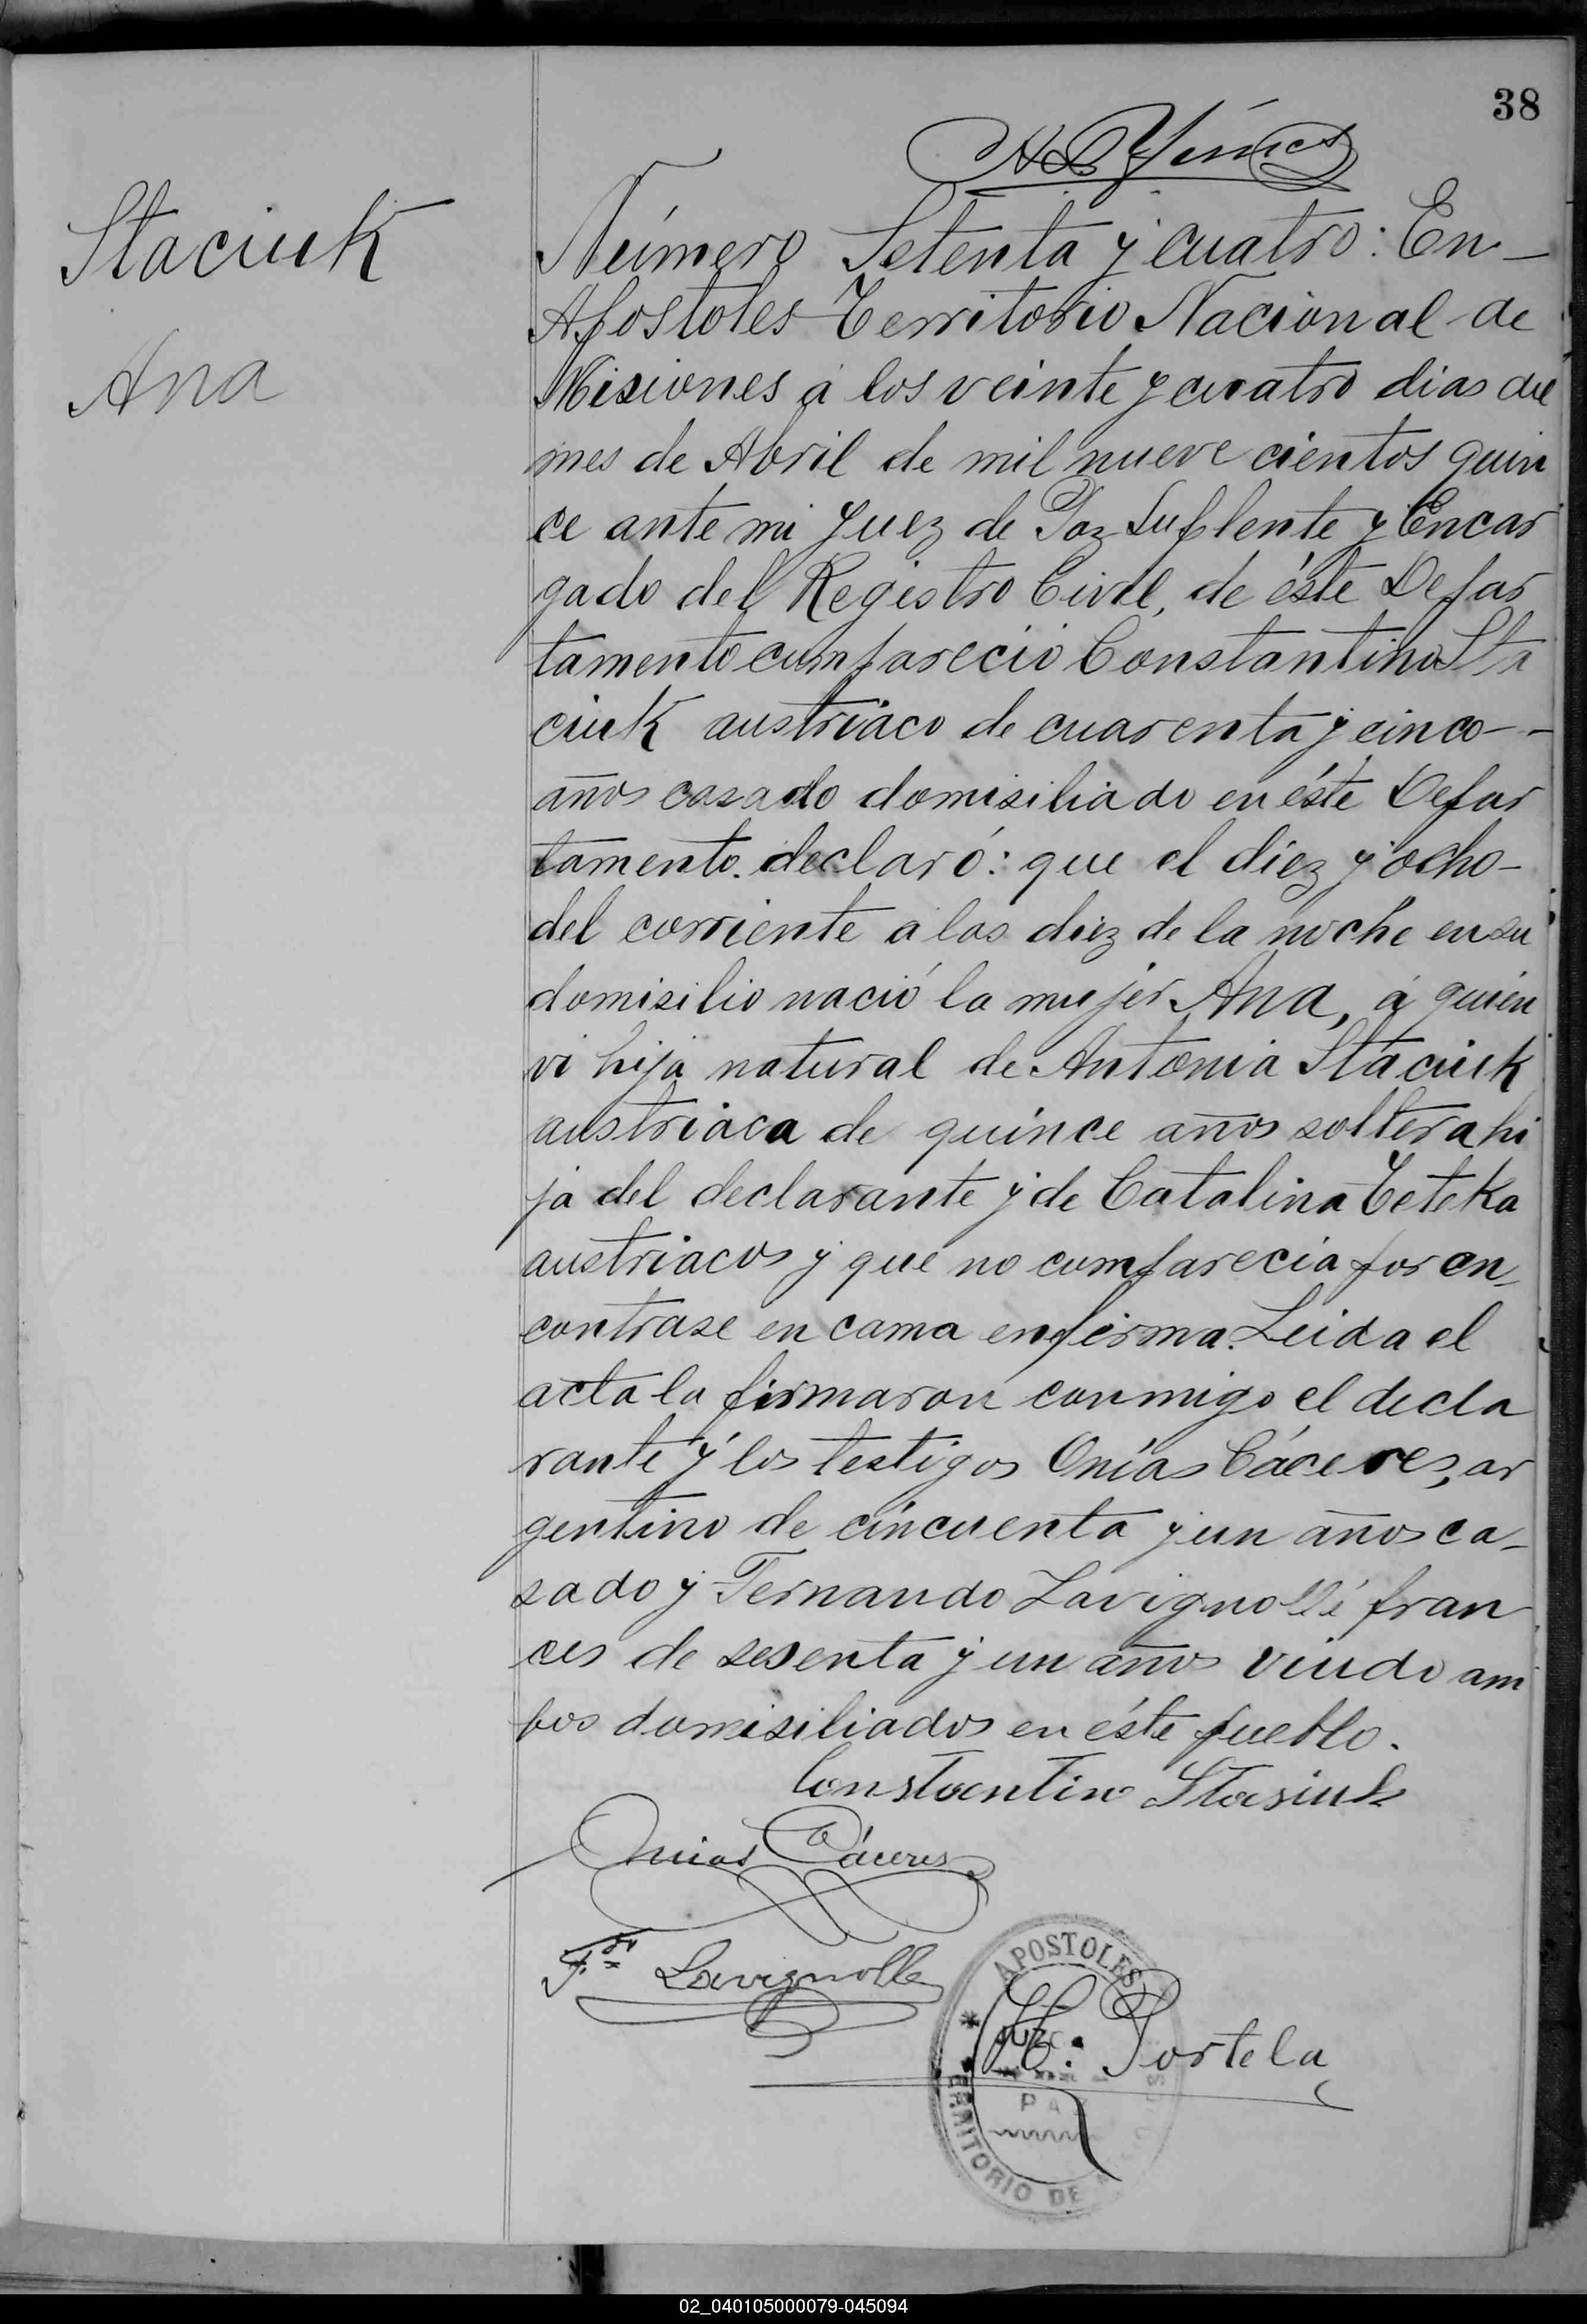 38
Staciuk
Ana
Número Setenta y cuatro: En
Apostoles Territorio Nacional de
Misiones á los veinte y cuatro dias del
mes de Abril de mil nueve cientos quin
ce ante mi Juez de Paz Suplente y Encar
gado del Registro Civil, de éste Depar
tamento compareció Constantino Sta
ciuk austriaco de cuarenta y cinco
años casado domisiliado en éste Depar
tamento. declaró: que el diez y ocho
del corriente a las diez de la noche en su
domisilio nació la mujer Ana, á quien
vi hija natural de Antonia Staciuk
austriaca de quince años soltera hi
ja del declarante y de Catalina Teteka
austriacos y que no comparecia por en
contrase en cama enferma. Leida el
acta la firmaron conmigo el decla
rante y los testigos Onías Cáceres, ar
gentino de cincuenta y un años ca-
sado y Fernando Lavignollé fran
ces de sesenta y un años viudo am
bos domisiliados en éste pueblo.
Constantino Stasiuk
Onias Cáceres
F.do Lavignolle
APOSTOLES
H. Portela
PAZ
TERRITORIO DE
02_040105000079-045094